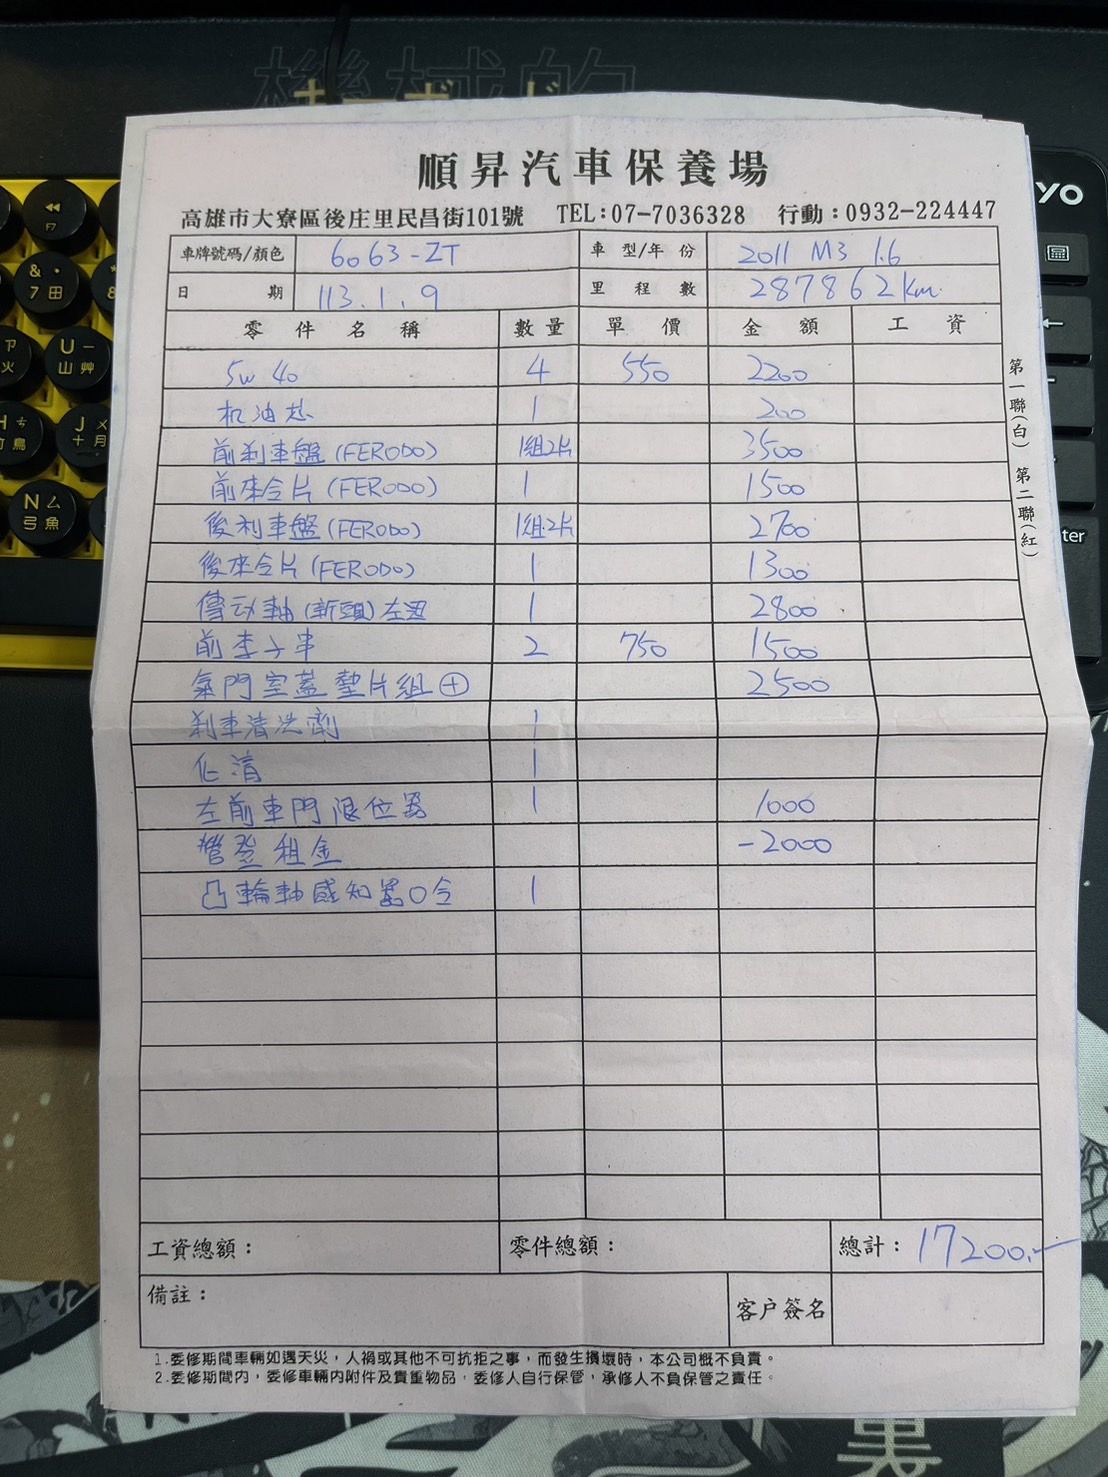 機械的
キーボード
順昇汽車保養場
高雄市大寮區後庄里民昌街101號 TEL:07-7036328 行動:0932-224447
車牌號碼/顏色 6063-ZT 車型/年份 2011 M3 1.6
日期 113.1.9 里程數 287862km
零件名稱 數量 單價 金額 工資
5w40 4 550 2200
机油芯 1 200
前刹車盤(FERODO) 1組2片 3500
前來令片(FERODO) 1 1500
後刹車盤(FERODO) 1組2片 2700
後來令片(FERODO) 1 1300
傳动軸(新頭)左边 1 2800
前李子串 2 750 1500
氣門室蓋墊片組⊕ 2500
刹車清洗劑 1
化清 1
左前車門限位器 1 1000
營登租金 -2000
凸輪軸感知器O令 1
工資總額: 零件總額: 總計: 17200.-
備註: 客戶簽名
1.委修期間車輛如遇天災,人禍或其他不可抗拒之事,而發生損壞時,本公司概不負責。
2.委修期間內,委修車輛內附件及貴重物品,委修人自行保管,承修人不負保管之責任。
第一聯(白) 第二聯(紅)
YO
F7
& 7 田
U 山
J 十 月
N 弓 魚
ter
裏